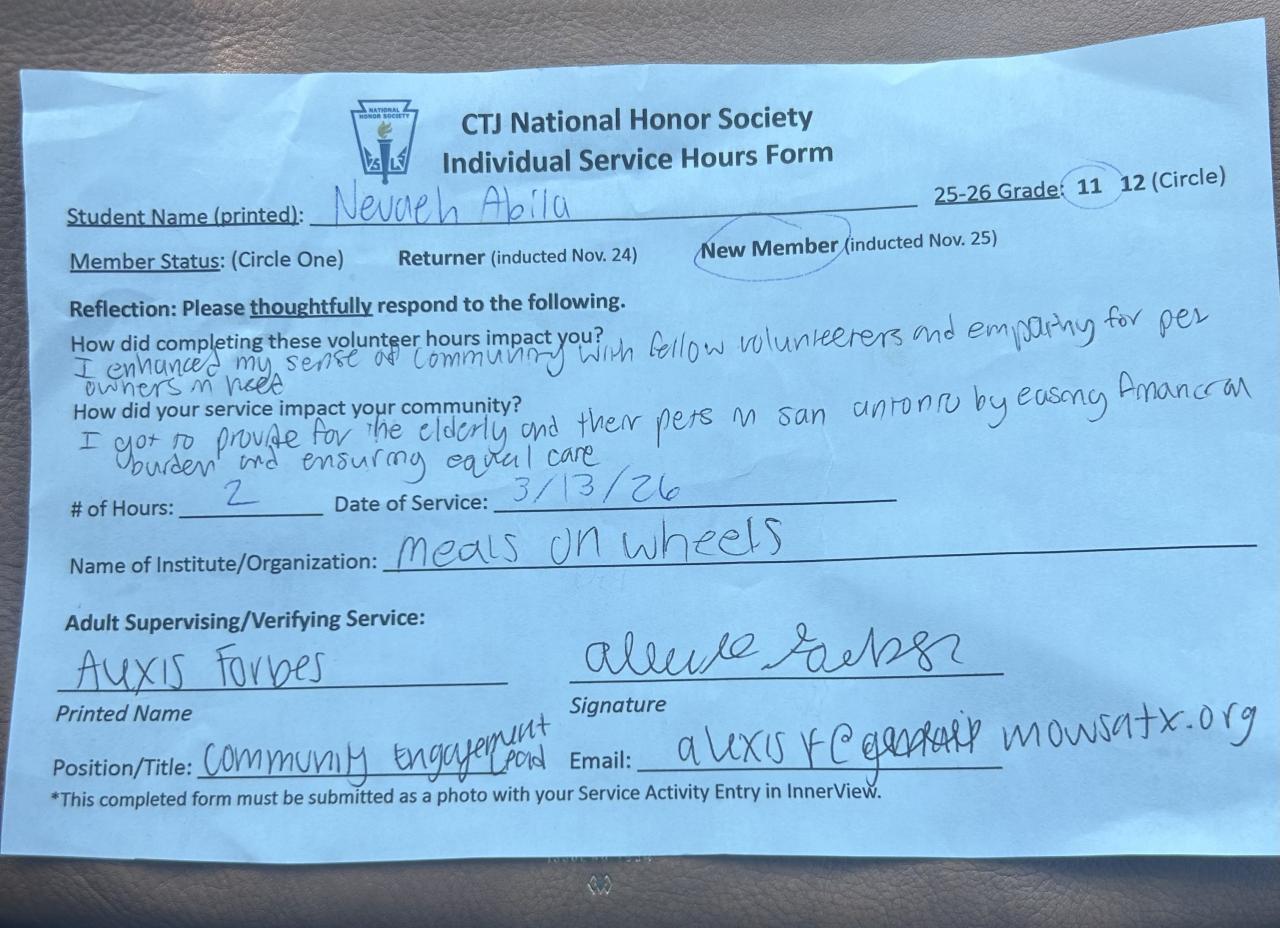 NATIONAL
HONOR SOCIETY
CTJ National Honor Society
Individual Service Hours Form
Student Name (printted): Nevaeh Abila 25-26 Grade: 11 12 (Circle)
Member Status: (Circle One) Returner (inducted Nov. 24) New Member (inducted Nov. 25)
Reflection: Please thoughtfully respond to the following.
How did completing these volunteer hours impact you?
I enhanced my sense of community with fellow volunteerers and empathy for pet
owners in need
How did your service impact your community?
I got to provide for the elderly and their pets in san antonio by easing financial
burden and ensuring equal care
# of Hours: 2 Date of Service: 3/13/26
Name of Institute/Organization: meals on wheels
Adult Supervising/Verifying Service:
Alexis Forbes
Printed Name Signature
Position/Title: Community Engagement Lead Email: alexisf@mowsatx.org
*This completed form must be submitted as a photo with your Service Activity Entry in InnerView.